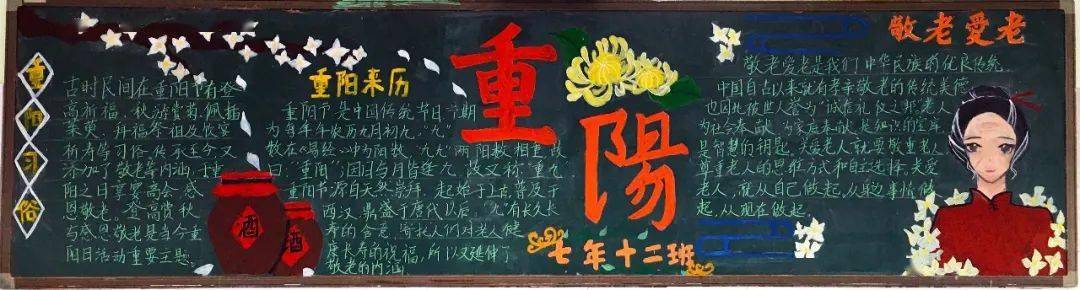 重阳习俗
古时民间在重阳节有登
高祈福、秋游赏菊、佩插
茱萸、拜福祭祖及饮宴
祈寿等习俗。传承至今，又
添加了敬老等内涵，于重
阳之日享宴高会，感
恩敬老。登高赏秋
与感恩敬老是当今重
阳日活动重要主题。
酒
酒
重阳来历
重阳节是中国传统节日,节期
为每年农历九月初九。“九”
数在《易经》中为阳数,“九九”两阳数相重,故
曰“重阳”;因日与月皆逢九,故又称“重九”
重阳节源自天象崇拜,起始于上古,普及于
西汉,鼎盛于唐代以后。“九”有长久长
寿的含意,寄托人们对老人健
康长寿的祝福,所以又延伸了
敬老的内涵
重
陽
七年十二班
敬老愛老
敬老爱老是我们中华民族的优良传统。
中国自古以来就有孝亲敬老的传统美德
也因礼被世人誉为“诚信礼仪之邦”老人
为社会奉献,为家庭奉献,是知识的宝库
是智慧的钥匙。关爱老人,就要敬重老人
尊重老人的思维方式和自主选择。关爱
老人,就从自己做起,从身边事情做
起,从现在做起。